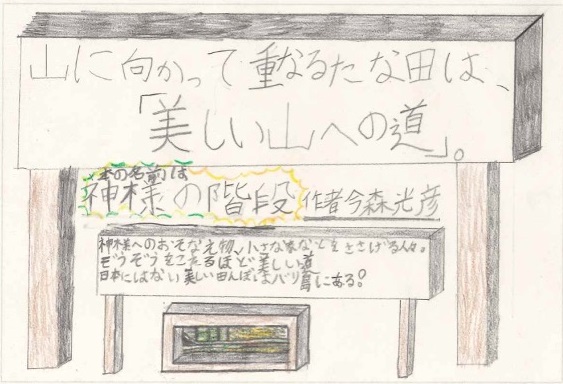 山に向かって重なるたな田は、
「美しい山への道」。
本の名前は
神様の階段 作者今森光彦
神様へのおそなえ物、小さな家などをささげる人々。
そうぞうをこえるほど美しい道
日本にはない美しい田んぼはバリ島にある!